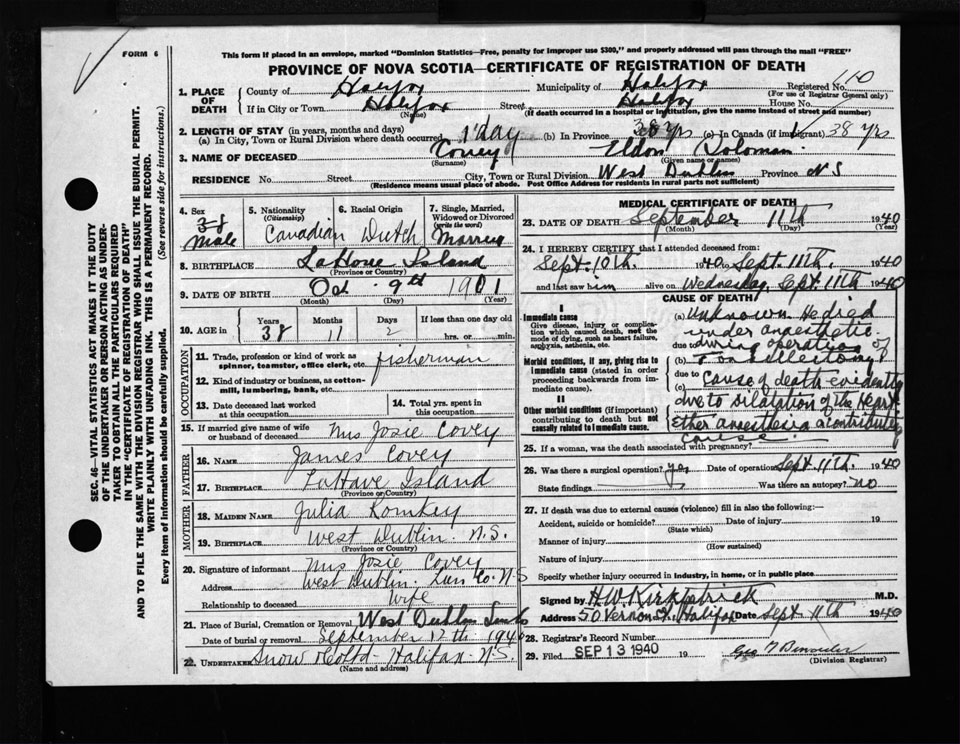 FORM 6
This form if placed in an envelope, marked "Dominion Statistics—Free, penalty for improper use $300," and properly addressed will pass through the mail "FREE"
PROVINCE OF NOVA SCOTIA—CERTIFICATE OF REGISTRATION OF DEATH
SEC. 46—VITAL STATISTICS ACT MAKES IT THE DUTY
OF THE UNDERTAKER OR PERSON ACTING AS UNDER-
TAKER TO OBTAIN ALL THE PARTICULARS REQUIRED
IN THE "CERTIFICATE OF REGISTRATION OF DEATH"
AND TO FILE THE SAME WITH THE DIVISION REGISTRAR WHO SHALL ISSUE THE BURIAL PERMIT.
WRITE PLAINLY WITH UNFADING INK. THIS IS A PERMANENT RECORD.
Every item of information should be carefully supplied. (See reverse side for instructions.)
1. PLACE OF DEATH County of Halifax Municipality of Halifax Registered No. 610
(For use of Registrar General only)
If in City or Town Halifax Street Halifax House No.
(Name) (If death occurred in a hospital or institution, give the name instead of street and number)
2. LENGTH OF STAY (in years, months and days)
(a) In City, Town or Rural Division where death occurred 1 day (b) In Province 38 yrs (c) In Canada (if immigrant) 38 yrs
3. NAME OF DECEASED Covey Eldon Soloman
(Surname) (Given name or names)
RESIDENCE No. Street City, Town or Rural Division West Dublin Province N S
(Residence means usual place of abode. Post Office Address for residents in rural parts not sufficient)
4. Sex 38 Male
5. Nationality (Citizenship) Canadian
6. Racial Origin Dutch
7. Single, Married, Widowed or Divorced (write the word) Married
8. BIRTHPLACE LaHave Island
(Province or Country)
9. DATE OF BIRTH Oct 9th 1901
(Month) (Day) (Year)
10. AGE in Years 38 Months 11 Days 2 If less than one day old
hrs. or min.
OCCUPATION
11. Trade, profession or kind of work as spinner, teamster, office clerk, etc. fisherman
12. Kind of industry or business, as cotton-mill, lumbering, bank, etc.
13. Date deceased last worked at this occupation
14. Total yrs. spent in this occupation
15. If married give name of wife or husband of deceased Mrs Josie Covey
FATHER
16. NAME James Covey
17. BIRTHPLACE LaHave Island
(Province or Country)
MOTHER
18. MAIDEN NAME Julia Romkey
19. BIRTHPLACE West Dublin. N.S.
(Province or Country)
20. Signature of informant Mrs Josie Covey
Address West Dublin. Lun Co. N-S
Relationship to deceased Wife
21. Place of Burial, Cremation or Removal West Dublin
Date of burial or removal September 12th 1940
22. UNDERTAKER Snow & Co Ltd - Halifax - N.S.
(Name and address)
MEDICAL CERTIFICATE OF DEATH
23. DATE OF DEATH September 11th 1940
(Month) (Day) (Year)
24. I HEREBY CERTIFY that I attended deceased from:
Sept. 10th. 1940 to Sept. 11th. 1940
and last saw him alive on Wednesday, Sept 11th 1940
CAUSE OF DEATH
I
Immediate cause
Give disease, injury or complication which caused death, not the mode of dying, such as heart failure, asphyxia, asthenia, etc.
(a) Unknown. He died
under anaesthetic
due to during operation of
Morbid conditions, if any, giving rise to immediate cause (stated in order proceeding backwards from immediate cause).
(b) Tonsillectomy
due to Cause of death evidently
(c) due to dilatation of the Heart
II
Other morbid conditions (if important) contributing to death but not causally related to immediate cause.
Ether anaesthesia a contributing
cause.
25. If a woman, was the death associated with pregnancy?
26. Was there a surgical operation? yes Date of operation Sept. 11th. 1940
State findings Was there an autopsy? no
27. If death was due to external causes (violence) fill in also the following:—
Accident, suicide or homicide? Date of injury 19
(State which)
Manner of injury
(How sustained)
Nature of injury
Specify whether injury occurred in industry, in home, or in public place
Signed by H.W. Kirkpatrick M.D.
Address 50 Vernon St., Halifax Date Sept 11th 1940
28. Registrar's Record Number
29. Filed SEP 13 1940 19
(Division Registrar)